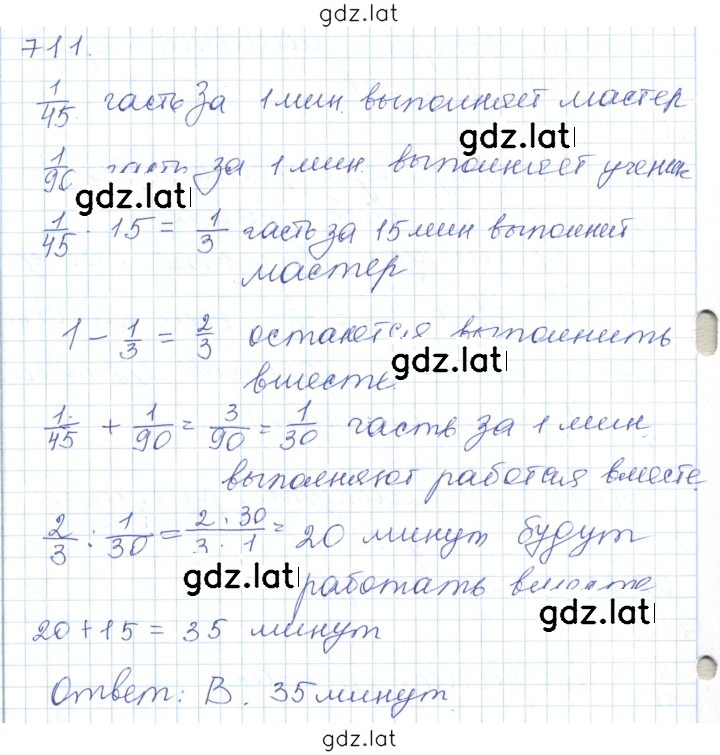 gdz.lat
711.
1/45 часть за 1 мин. выполняет мастер
gdz.lat
1/90 часть за 1 мин. выполняет ученик
gdz.lat
1/45 · 15 = 1/3 часть за 15 мин выполнит
мастер
1 - 1/3 = 2/3 останется выполнить
gdz.lat
вместе.
1/45 + 1/90 = 3/90 = 1/30 часть за 1 мин.
выполняют работая вместе
2/3 : 1/30 = 2·30/3·1 = 20 минут будут
gdz.lat
работать вместе
gdz.lat
20 + 15 = 35 минут
Ответ: В. 35 минут
gdz.lat